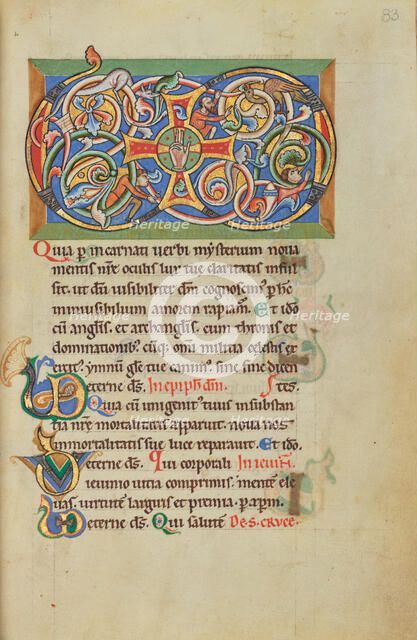 83
Quia p incarnati verbi mysterium noua
mentis nre oculis lux tue claritatis infull
sit. ut dũ uisibiliter dm cognoscim' p hc
inuisibilium amorem rapiam. Et ido
cũ anglis. et archanglis. cum thronis et
dominationib. cũq. omi militia celestis ex
ercit'. ymnum gle tue canim'. sine fine dicen
eterne ds. In epiph dni. Stes.
Quia cum unigenit' tuus in substan
tia nre mortalitatis apparuit. noua nos
inmortalitatis sue luce reparauit. Et ido.
eterne ds. Qui corporali In ieiuñ.
ieiunio uitia comprimis. mente ele
uas. uirtutem largiris et premia. p xpm.
eterne ds. Qui salutem De s. cruce.
Heritage
Heritage
Heritage
Heritage
Heritage
Heritage